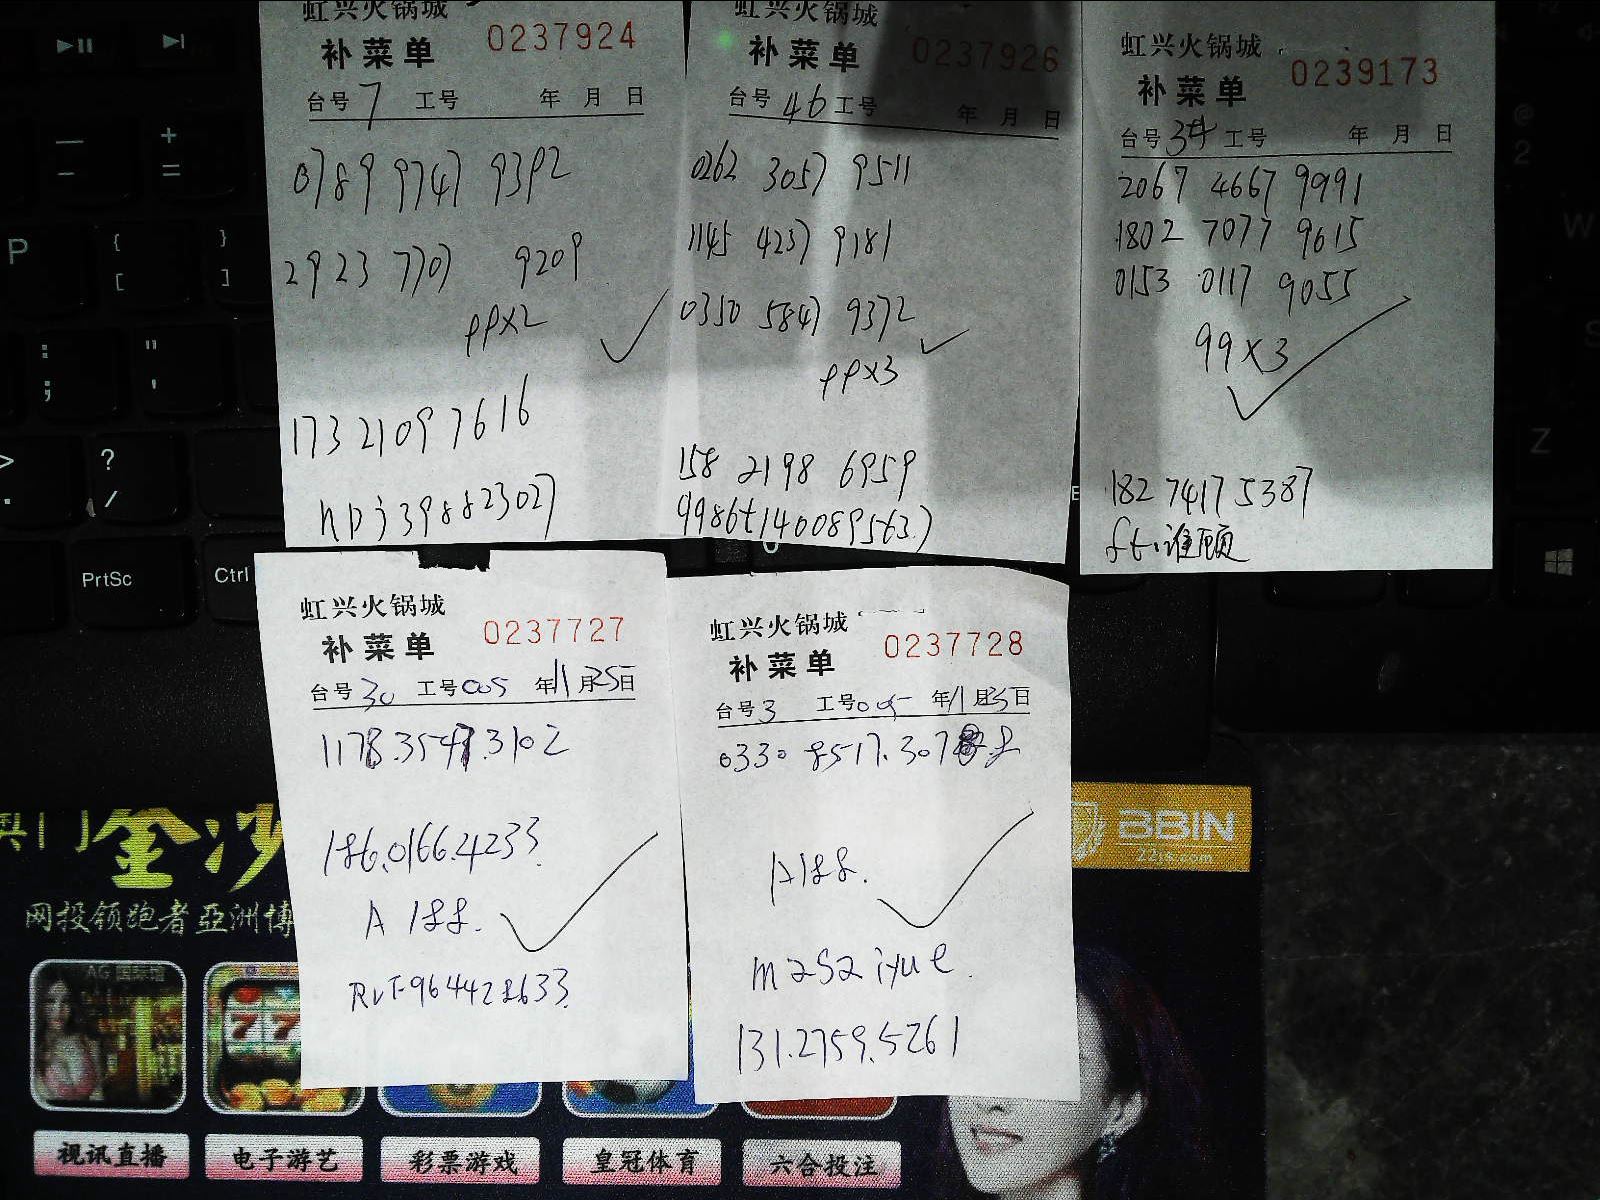 虹兴火锅城
补菜单 0237924
台号 7 工号 年 月 日
0789 9747 9392
2923 7707 9209
PPX2
173 2109 7616
hpj398823027
虹兴火锅城
补菜单 0237926
台号 46 工号 年 月 日
0262 3057 9511
1145 4237 9181
0350 5847 9372
PPX3
158 2198 6959
虹兴火锅城
补菜单 0239173
台号 工号 年 月 日
2067 4667 9991
1802 7077 9615
0153 0117 9055
99X3
182 7417 5387
虹兴火锅城
补菜单 0237727
台号 30 工号 005 年 11 月 25 日
1178.3547.3102
186.0166.4233
A 188.
虹兴火锅城
补菜单 0237728
台号 3 工号 005 年 11 月 25 日
0330 8517.307
A188.
131.2759.5261
P
{
[
}
]
+
=
:
;
"
'
?
/
PrtSc
Ctrl
Z
金沙
网投领跑者亞洲博
BBIN
22js.com
AG
视讯直播
电子游艺
彩票游戏
皇冠体育
六合投注